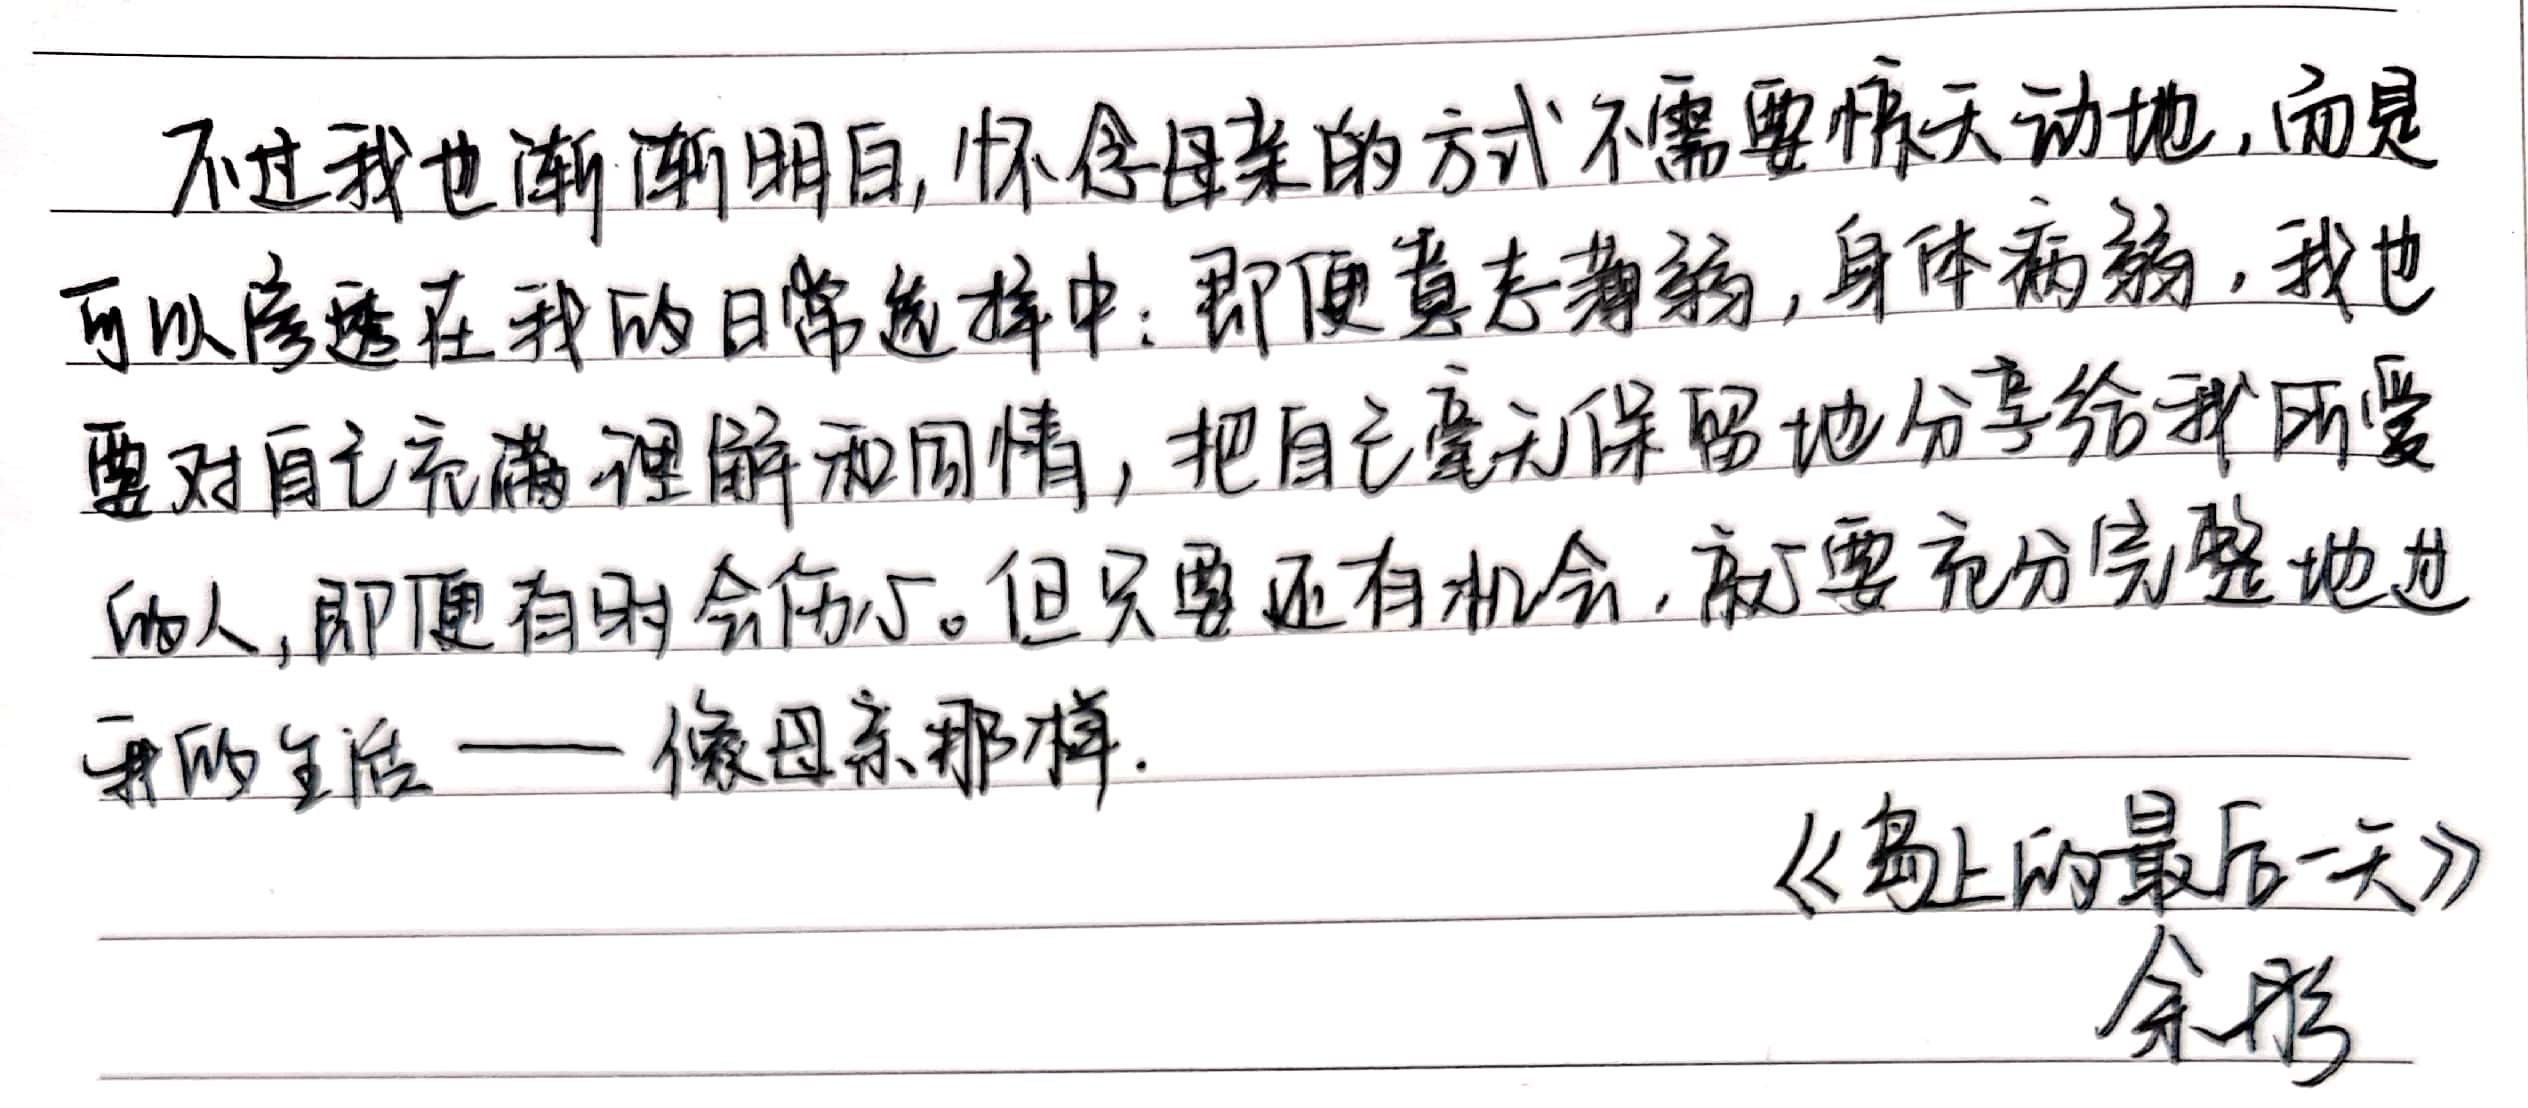 不过我也渐渐明白,怀念母亲的方式不需要惊天动地,而是
可以渗透在我的日常选择中:即便意志薄弱,身体病弱,我也
要对自己充满理解和同情,把自己毫无保留地分享给我所爱
的人,即便有时会伤心。但只要还有机会,就要充分完整地过
我的生活——像母亲那样.
《岛上的最后一天》
余彤